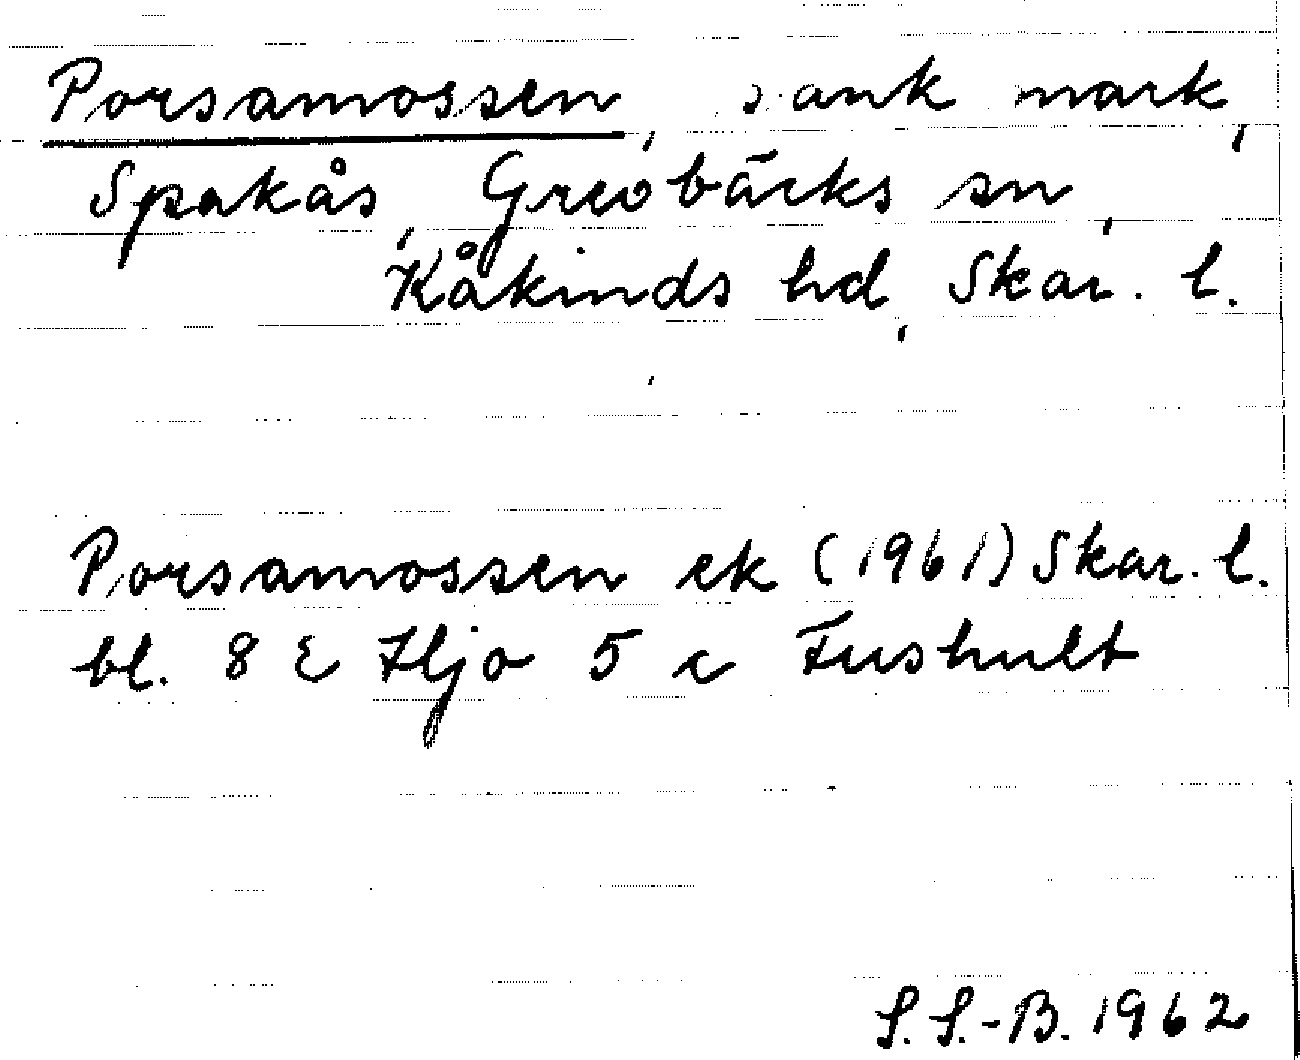 Porsamossen, sank mark,
Spakås, Grevbäcks sn,
Kåkinds hd, Skar. l.
Porsamossen ek (1961) Skar. l.
bl. 8 E Hjo 5 c Fushult
S. S.-B. 1962